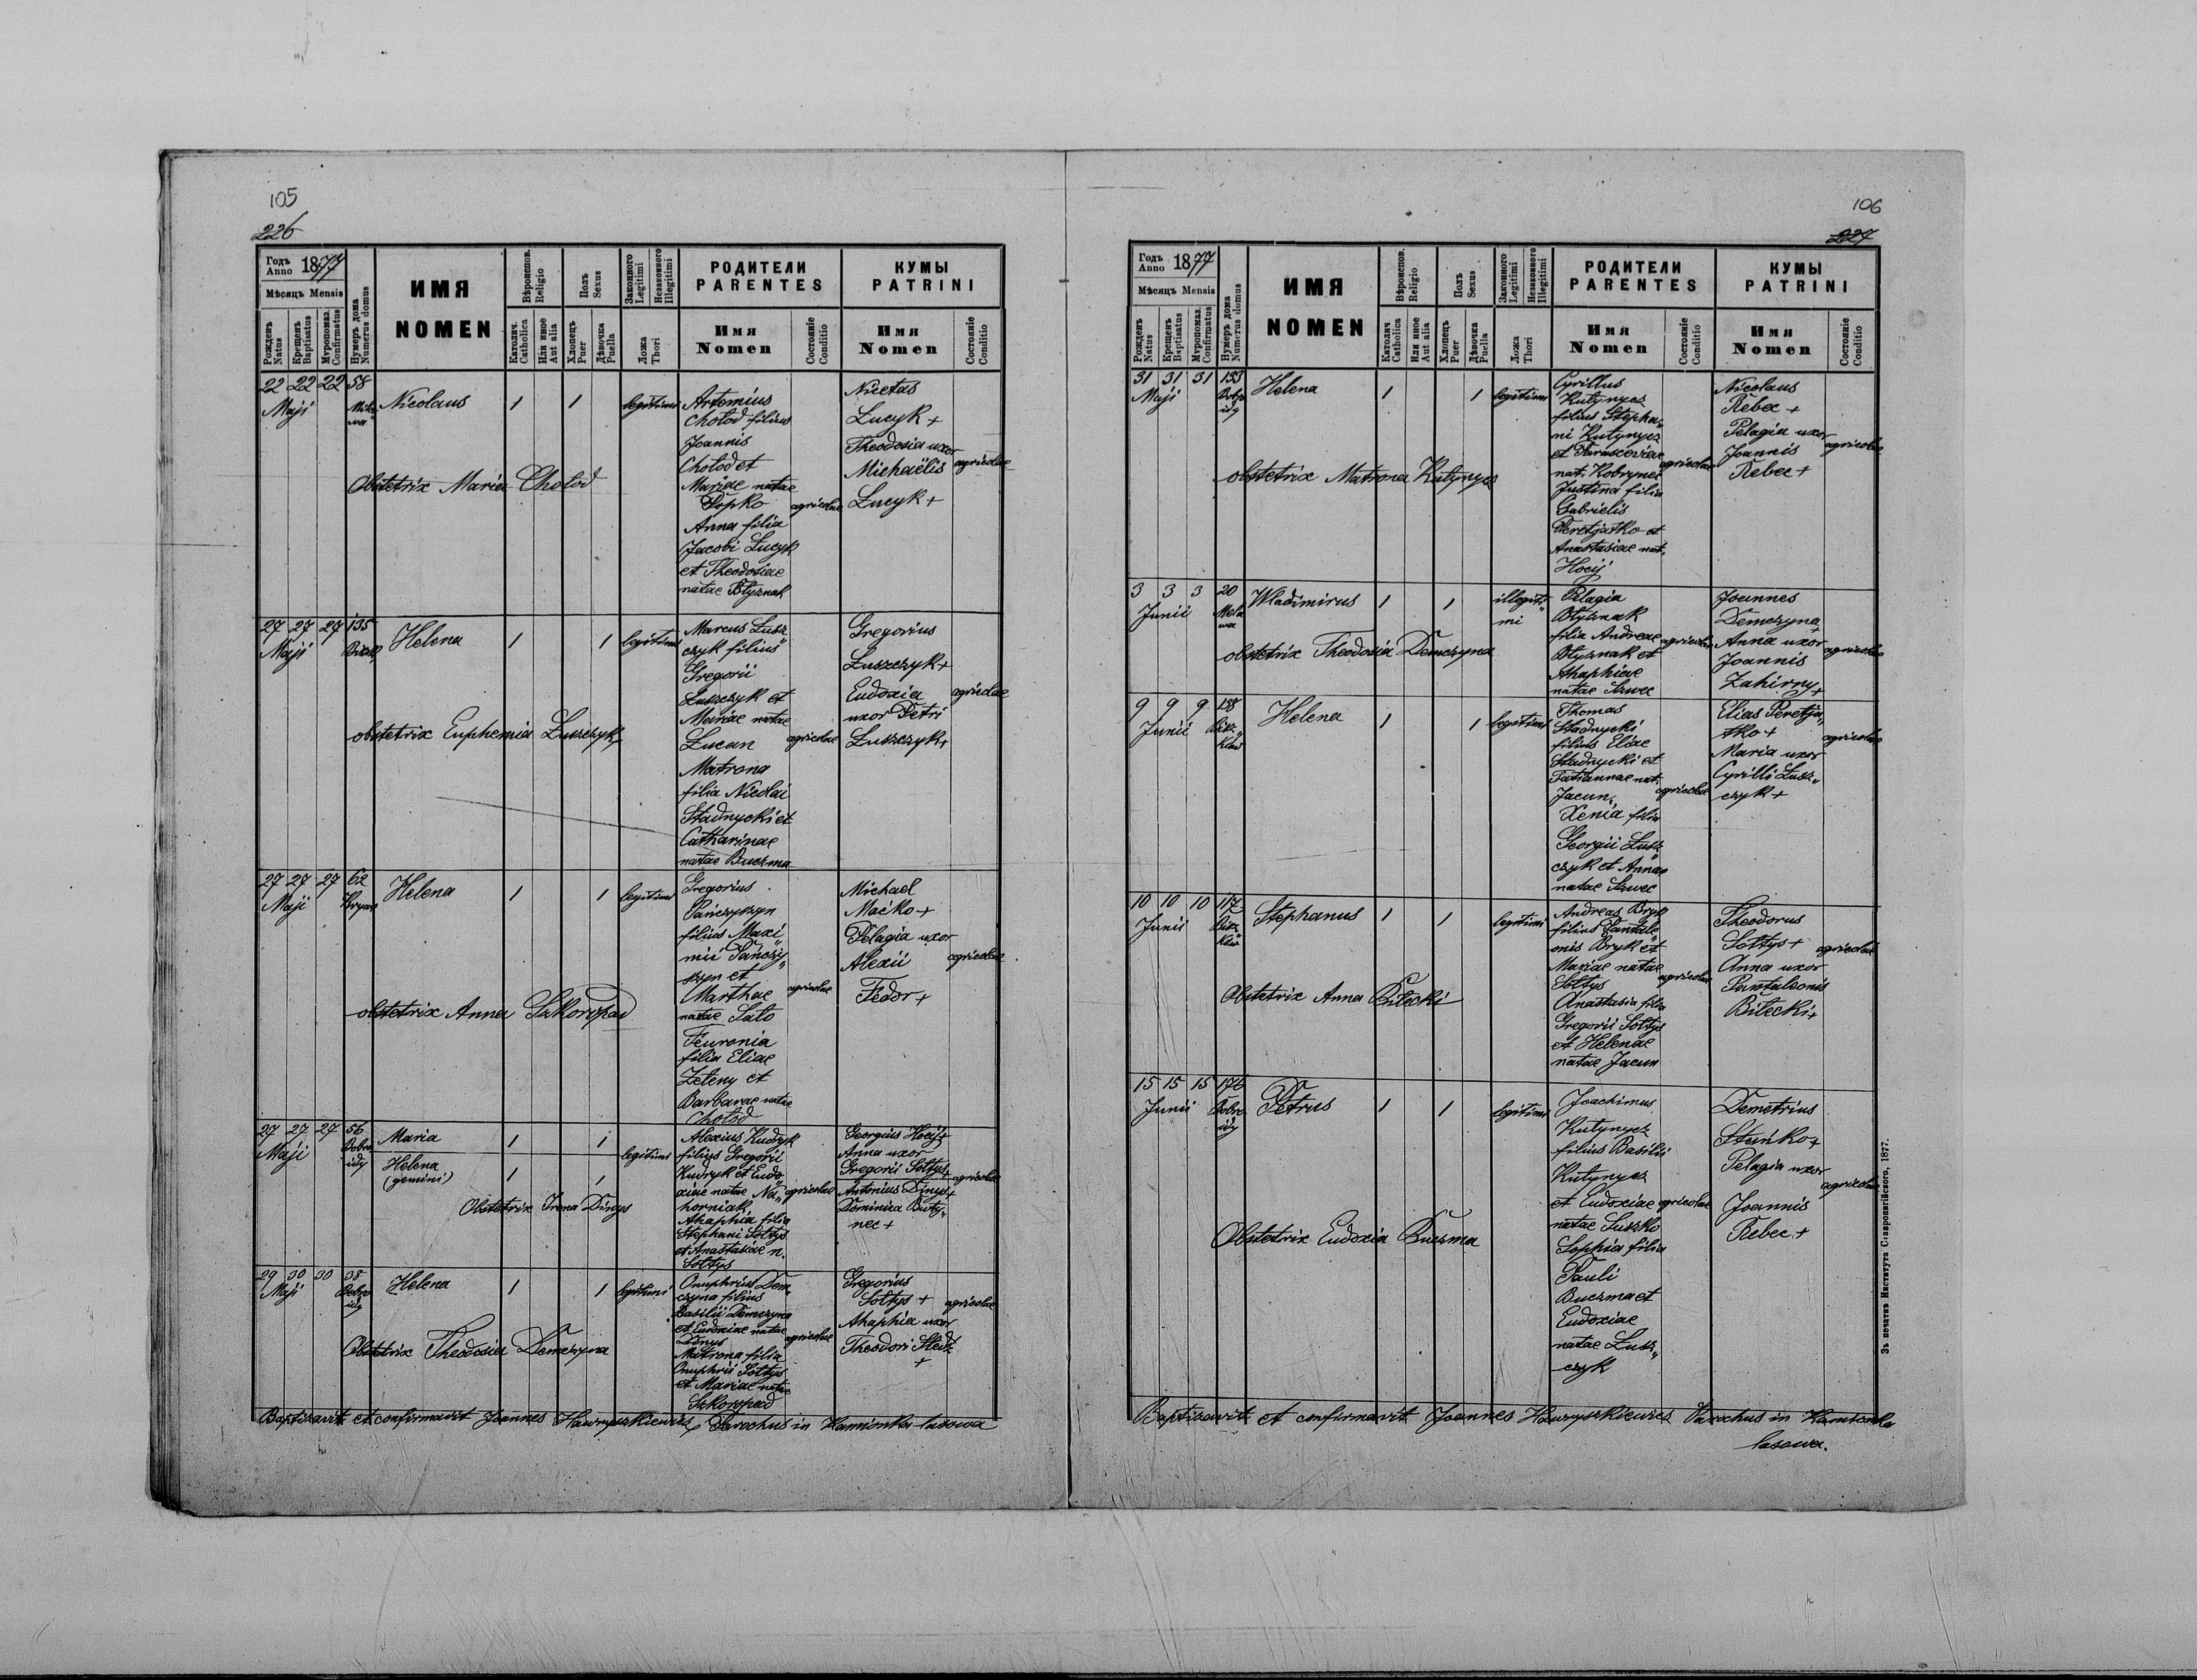 105
226
Годъ Anno 1877
Мѣсяцъ Mensis
Рожденъ Natus
Крещенъ Baptisatus
Мѵропомаз. Confirmatus
Нумеръ дома Numerus domus
ИМЯ
NOMEN
Вѣроисповѣ. Religio
Католич. Catholica
Или иное Aut alia
Полъ Sexus
Хлопецъ Puer
Дѣвочка Puella
Законного Legitimi
Незаконного Illegitimi
Ложа Thori
РОДИТЕЛИ
PARENTES
Имя
Nomen
Состояніе Conditio
КУМЫ
PATRINI
Имя
Nomen
Состояніе Conditio
22 22 22 58
Maji
Nicolaus 1 1 legitimi
Artemius
Chołod filius
Joannis
Chołod et
Mariae natae
Popko agricolae
Anna filia
Jacobi Łucyk
et Theodosiae
natae
Nicetas
Łucyk +
Theodosia uxor
Michaëlis agricolae
Łucyk +
Obstetrix Maria Chołod
27 27 27 135
Maji
Helena 1 1 legitimi
Marcus Łusz„
czyk filius
Gregorii
Łuszczyk et
Mariae natae
Łucan agricolae
Matrona
filia Nicolai
Stadnycki et
Catharinae
natae Buczma
Gregorius
Łuszczyk +
Eudoxia agricolae
uxor Petri
Łuszczyk +
obstetrix Euphemia Łuszczyk
27 27 27 62
Maji
Helena 1 1 legitimi
Gregorius
Pańczyszyn
filius Maxi„
mii Pańczy„
szyn et
Marthae agricolae
natae Sało
Feuronia
filia Eliae
Zeleny et
Barbarae natae
Chołod
Michael
Maćko +
Pelagia uxor
Alexii agricolae
Fedor +
obstetrix Anna Szkoropad
27 27 27 56
Maji
Dobro
idy
Maria 1 1
Helena 1 1
(gemini)
legitimi
Alexius Kudryk
filius Gregorii
Kudryk et Eudo„
xiae natae Na„ agricolae
horniak
Ahaphia filia
Stephani Sołtys
et Anastasiae n.
Sołtys
Georgius Hocij +
Anna uxor
Gregorii Sołtys + agricolae
Antonius Dinys +
Dominica Buty„
nec +
Obstetrix Irena Dinys
29 30 30 38
Maji
Dobro
idy
Helena 1 1 legitimi
Onuphrius Dem„
czyna filius
Basilii Demczyna
et Eudoxiae natae
Dinys agricolae
Matrona filia
Onuphrii Sołtys
et Mariae natae
Szkoropad
Gregorius
Sołtys + agricolae
Ahaphia uxor
Theodori
+
Obstetrix Theodosia Demczyna
Baptisavit et confirmavit Joannes Hawryszkiewicz Parochus in Kamionka lasowa
106
227
Годъ Anno 1877
Мѣсяцъ Mensis
Рожденъ Natus
Крещенъ Baptisatus
Мѵропомаз. Confirmatus
Нумеръ дома Numerus domus
ИМЯ
NOMEN
Вѣроиспов. Religio
Католич Catholica
Или иное Aut alia
Полъ Sexus
Хлопецъ Puer
Дѣвочка Puella
Законного Legitimi
Незаконного Illegitimi
Ложа Thori
РОДИТЕЛИ
PARENTES
Имя
Nomen
Состояніе Conditio
КУМЫ
PATRINI
Имя
Nomen
Состояніе Conditio
31 31 31 133
Maji
Dobro
idy
Helena 1 1 legitimi
Cyrillus
Kutynycz
filius Stepha„
ni Kutynycz
et Parasceviae
nat. Kobrynec agricolae
Justina filia
Gabrielis
Peretjatko et
Anastasiae nat.
Hocij
Nicolaus
Rebec +
Pelagia uxor
Joannis agricolae
Rebec +
obstetrix Matrona Kutynycz
3 3 3 20
Junii
Wladimirus 1 1 illegiti„
mi
Pelagia
filia Andreae agricolae
et
Ahaphiae
natae Szwec
Joannes
Demczyna +
Anna uxor agricolae
Joannis
Zahirny +
obstetrix Theodosia Demczyna
9 9 9 138
Junii
Helena 1 1 legitimi
Thomas
Stadnycki
filius Eliae
Stadnycki et
Tatiannae nat.
Jacun agricolae
Xenia filia
Georgii Łusz„
czyk et Annae
natae Szwec
Elias Peretja„
tko + agricolae
Maria uxor
Cyrilli Łusz„
czyk +
10 10 10 117
Junii
Stephanus 1 1 legitimi
Andreas Bryk
filius Pantale„
onis Bryk et
Mariae natae
Sołtys agricolae
Anastasia filia
Gregorii Sołtys
et Helenae
natae Jacun
Theodorus
Sołtys + agricolae
Anna uxor
Pantaleonis
Biłecki +
Obstetrix Anna Biłecki
15 15 15 176
Junii
Dobro
idy
Petrus 1 1 legitimi
Joachimus
Kutynycz
filius Basilii
Kutynycz
et Eudoxiae agricolae
natae Suszko
Sophia filia
Pauli
Buczma et
Eudoxiae
natae Łusz„
czyk
Demetrius
Stańko +
Pelagia uxor
agricolae
Joannis
Rebec +
Obstetrix Eudoxia Buczma
Baptisavit et confirmavit Joannes Hawryszkiewicz Parochus in Kamionka
lasowa.
Зъ печатнѣ Института Ставропигійского, 1877.